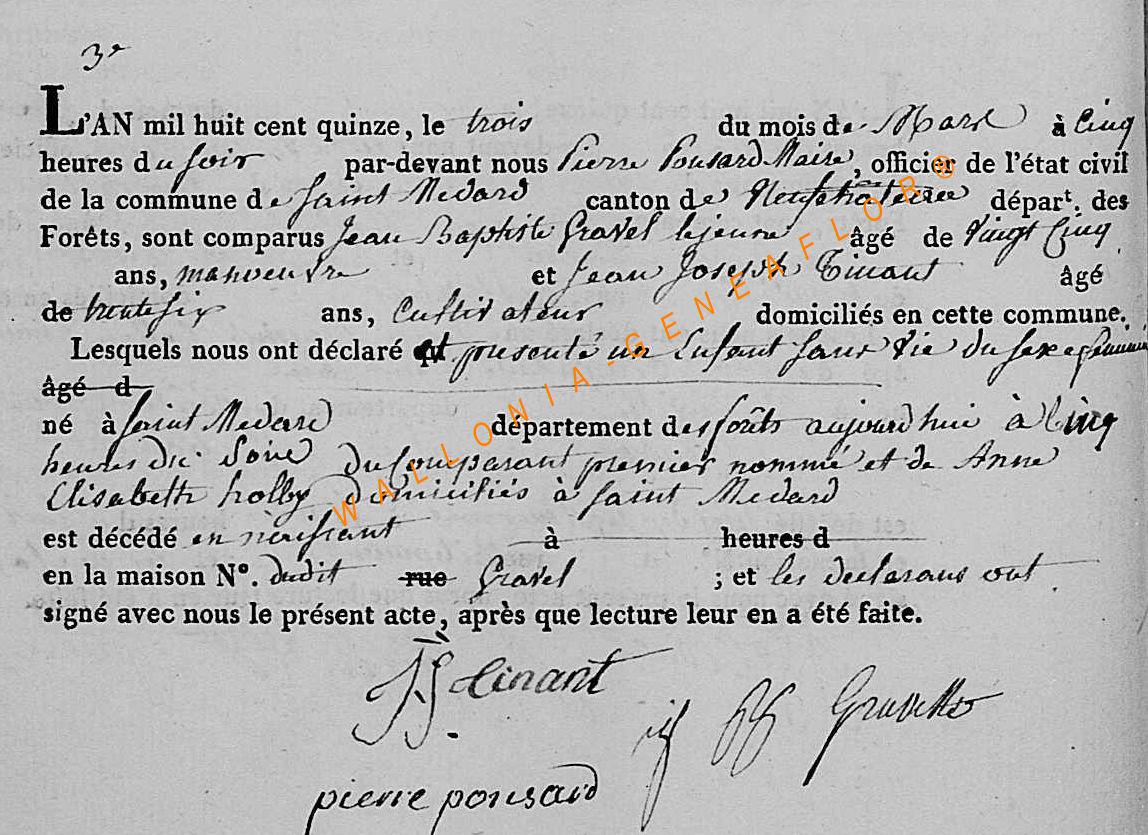 3e
L'AN mil huit cent quinze, le trois du mois de Mars à cinq
heures du soir par-devant nous Pierre Ponsard Maire, officier de l'état civil
de la commune de Saint Medard canton de Neufchateau départ. des
Forêts, sont comparus Jean Baptiste Gravel le jeune âgé de vingt cinq
ans, manoeuvre et Jean Joseph Tinant âgé
de trente six ans, Cultivateur domiciliés en cette commune.
Lesquels nous ont déclaré et presenté un Enfant sans vie du sexe
âgé d
né à Saint Medard département des forêts aujourd'huie à cinq
heures du Soire du Comparant premier nommé et de Anne
Elisabeth holby domiciliés à Saint Medard
est décédé en naissant à heures d
en la maison N°. dudit rue Gravel ; et les declarans ont
signé avec nous le présent acte, après que lecture leur en a été faite.
JJ tinant
pierre ponsard
WALLONIA-GENEAFLOR®